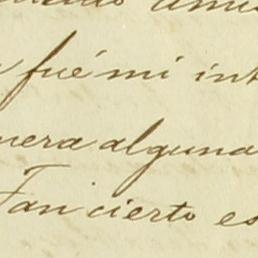 fué mi int
nera alguna
Tan cierto es